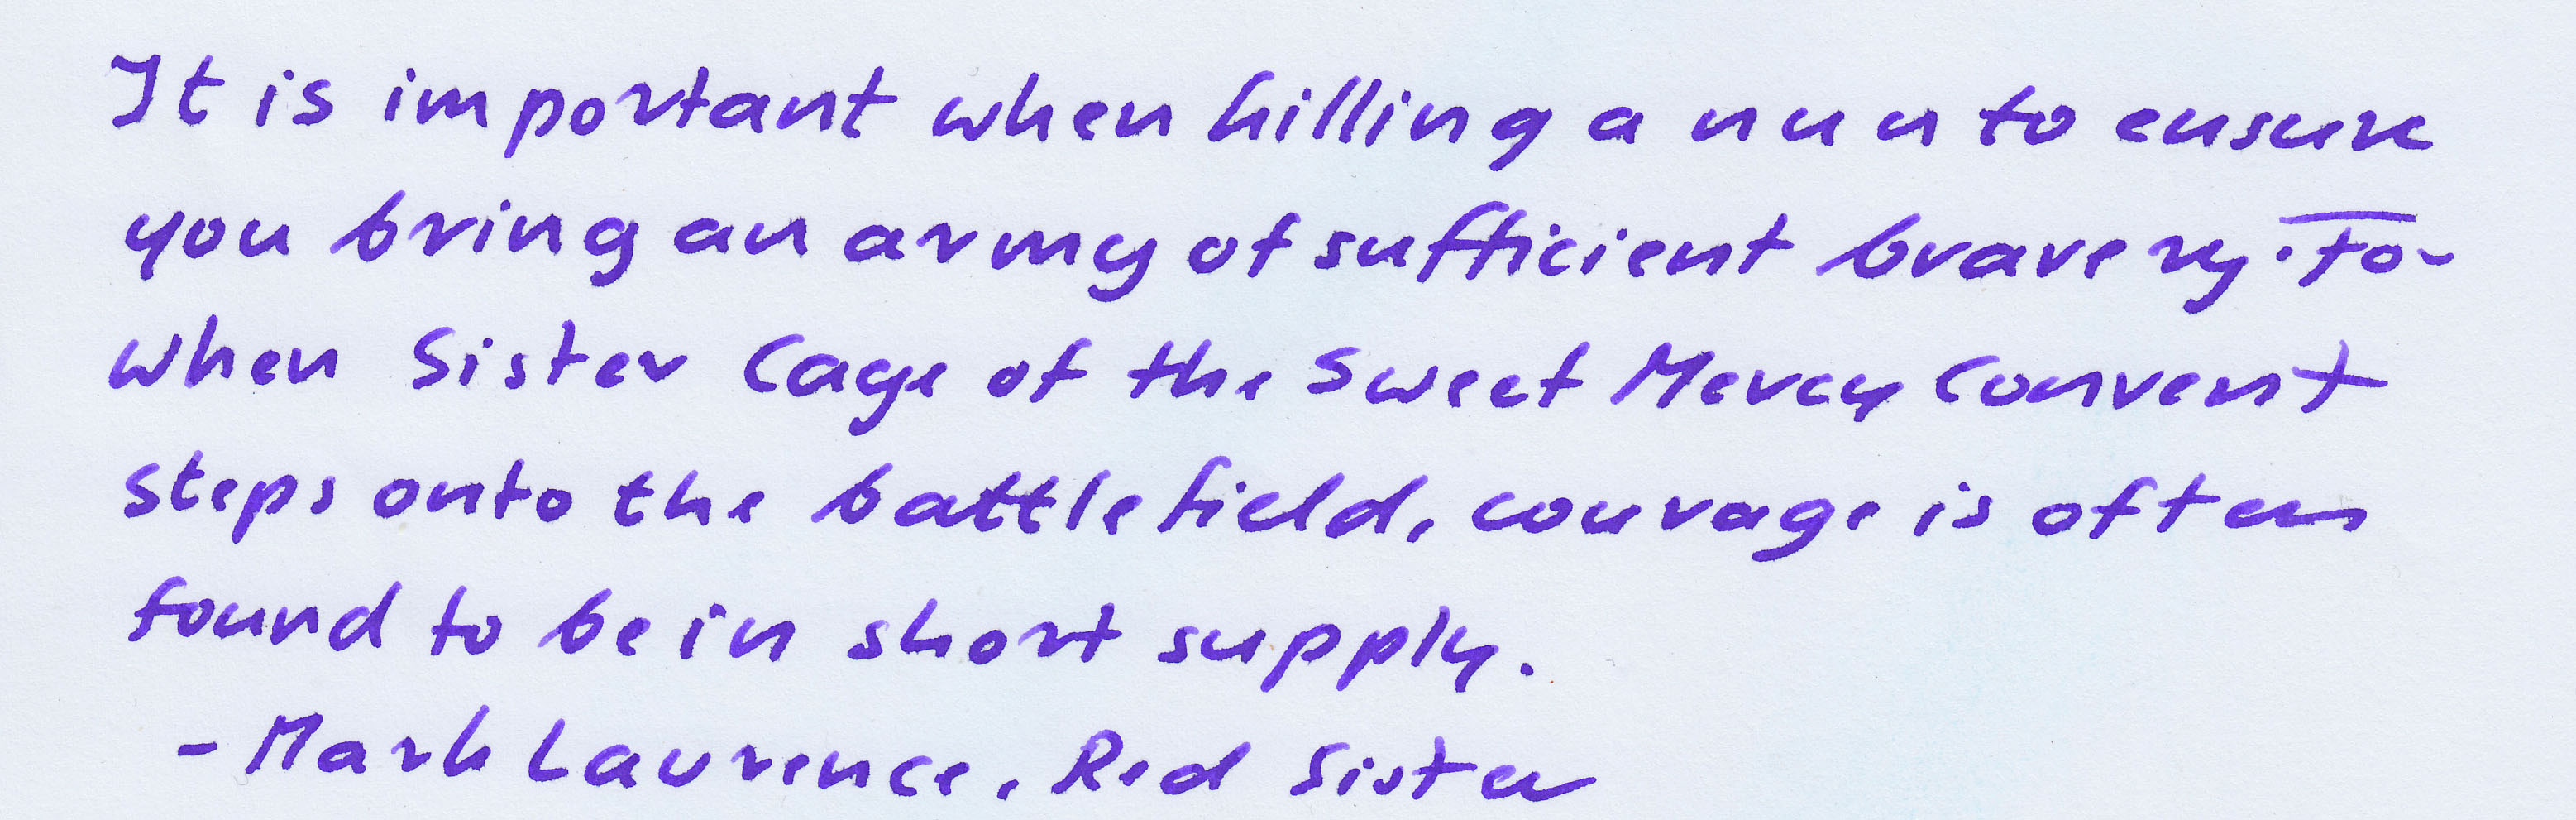 It is important when killing a nun to ensure
you bring an army of sufficient bravery. Fo-
when Sister Cage of the Sweet Mercy Convent
steps onto the battlefield, courage is often
found to be in short supply.
- Mark Laurence, Red Sister